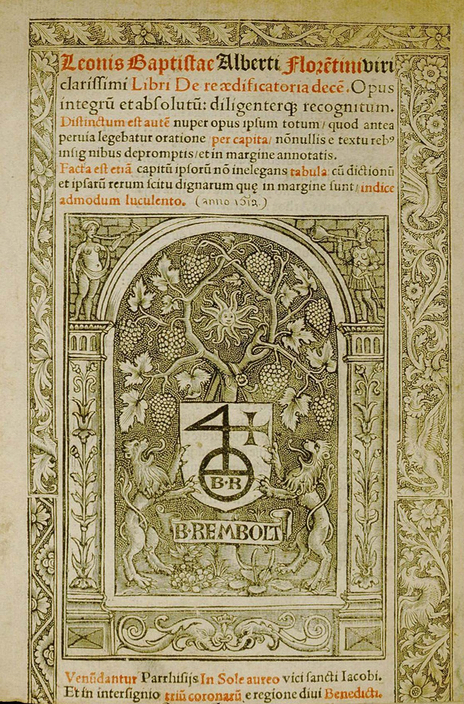 Leonis Baptistae Alberti Florẽtini viri
clarissimi Libri De re ædificatoria decẽ. Opus
integrũ et absolutũ: diligenterq; recognitum.
Distinctum est autẽ nuper opus ipsum totum/ quod antea
peruia legebatur oratione per capita/ nõnullis e textu rebꝰ
insignibus depromptis/ et in margine annotatis.
Facta est etiã capitũ ipsorũ nõ inelegans tabula: cũ dictionũ
et ipsarũ rerum scitu dignarum quę in margine sunt/ indice
admodum luculento. (anno 1512)
4
B·R
B·REMBOLT
Venũdantur Parrhisijs In Sole aureo vici sancti Iacobi.
Et in intersignio triũ coronarũ e regione diui Benedicti.